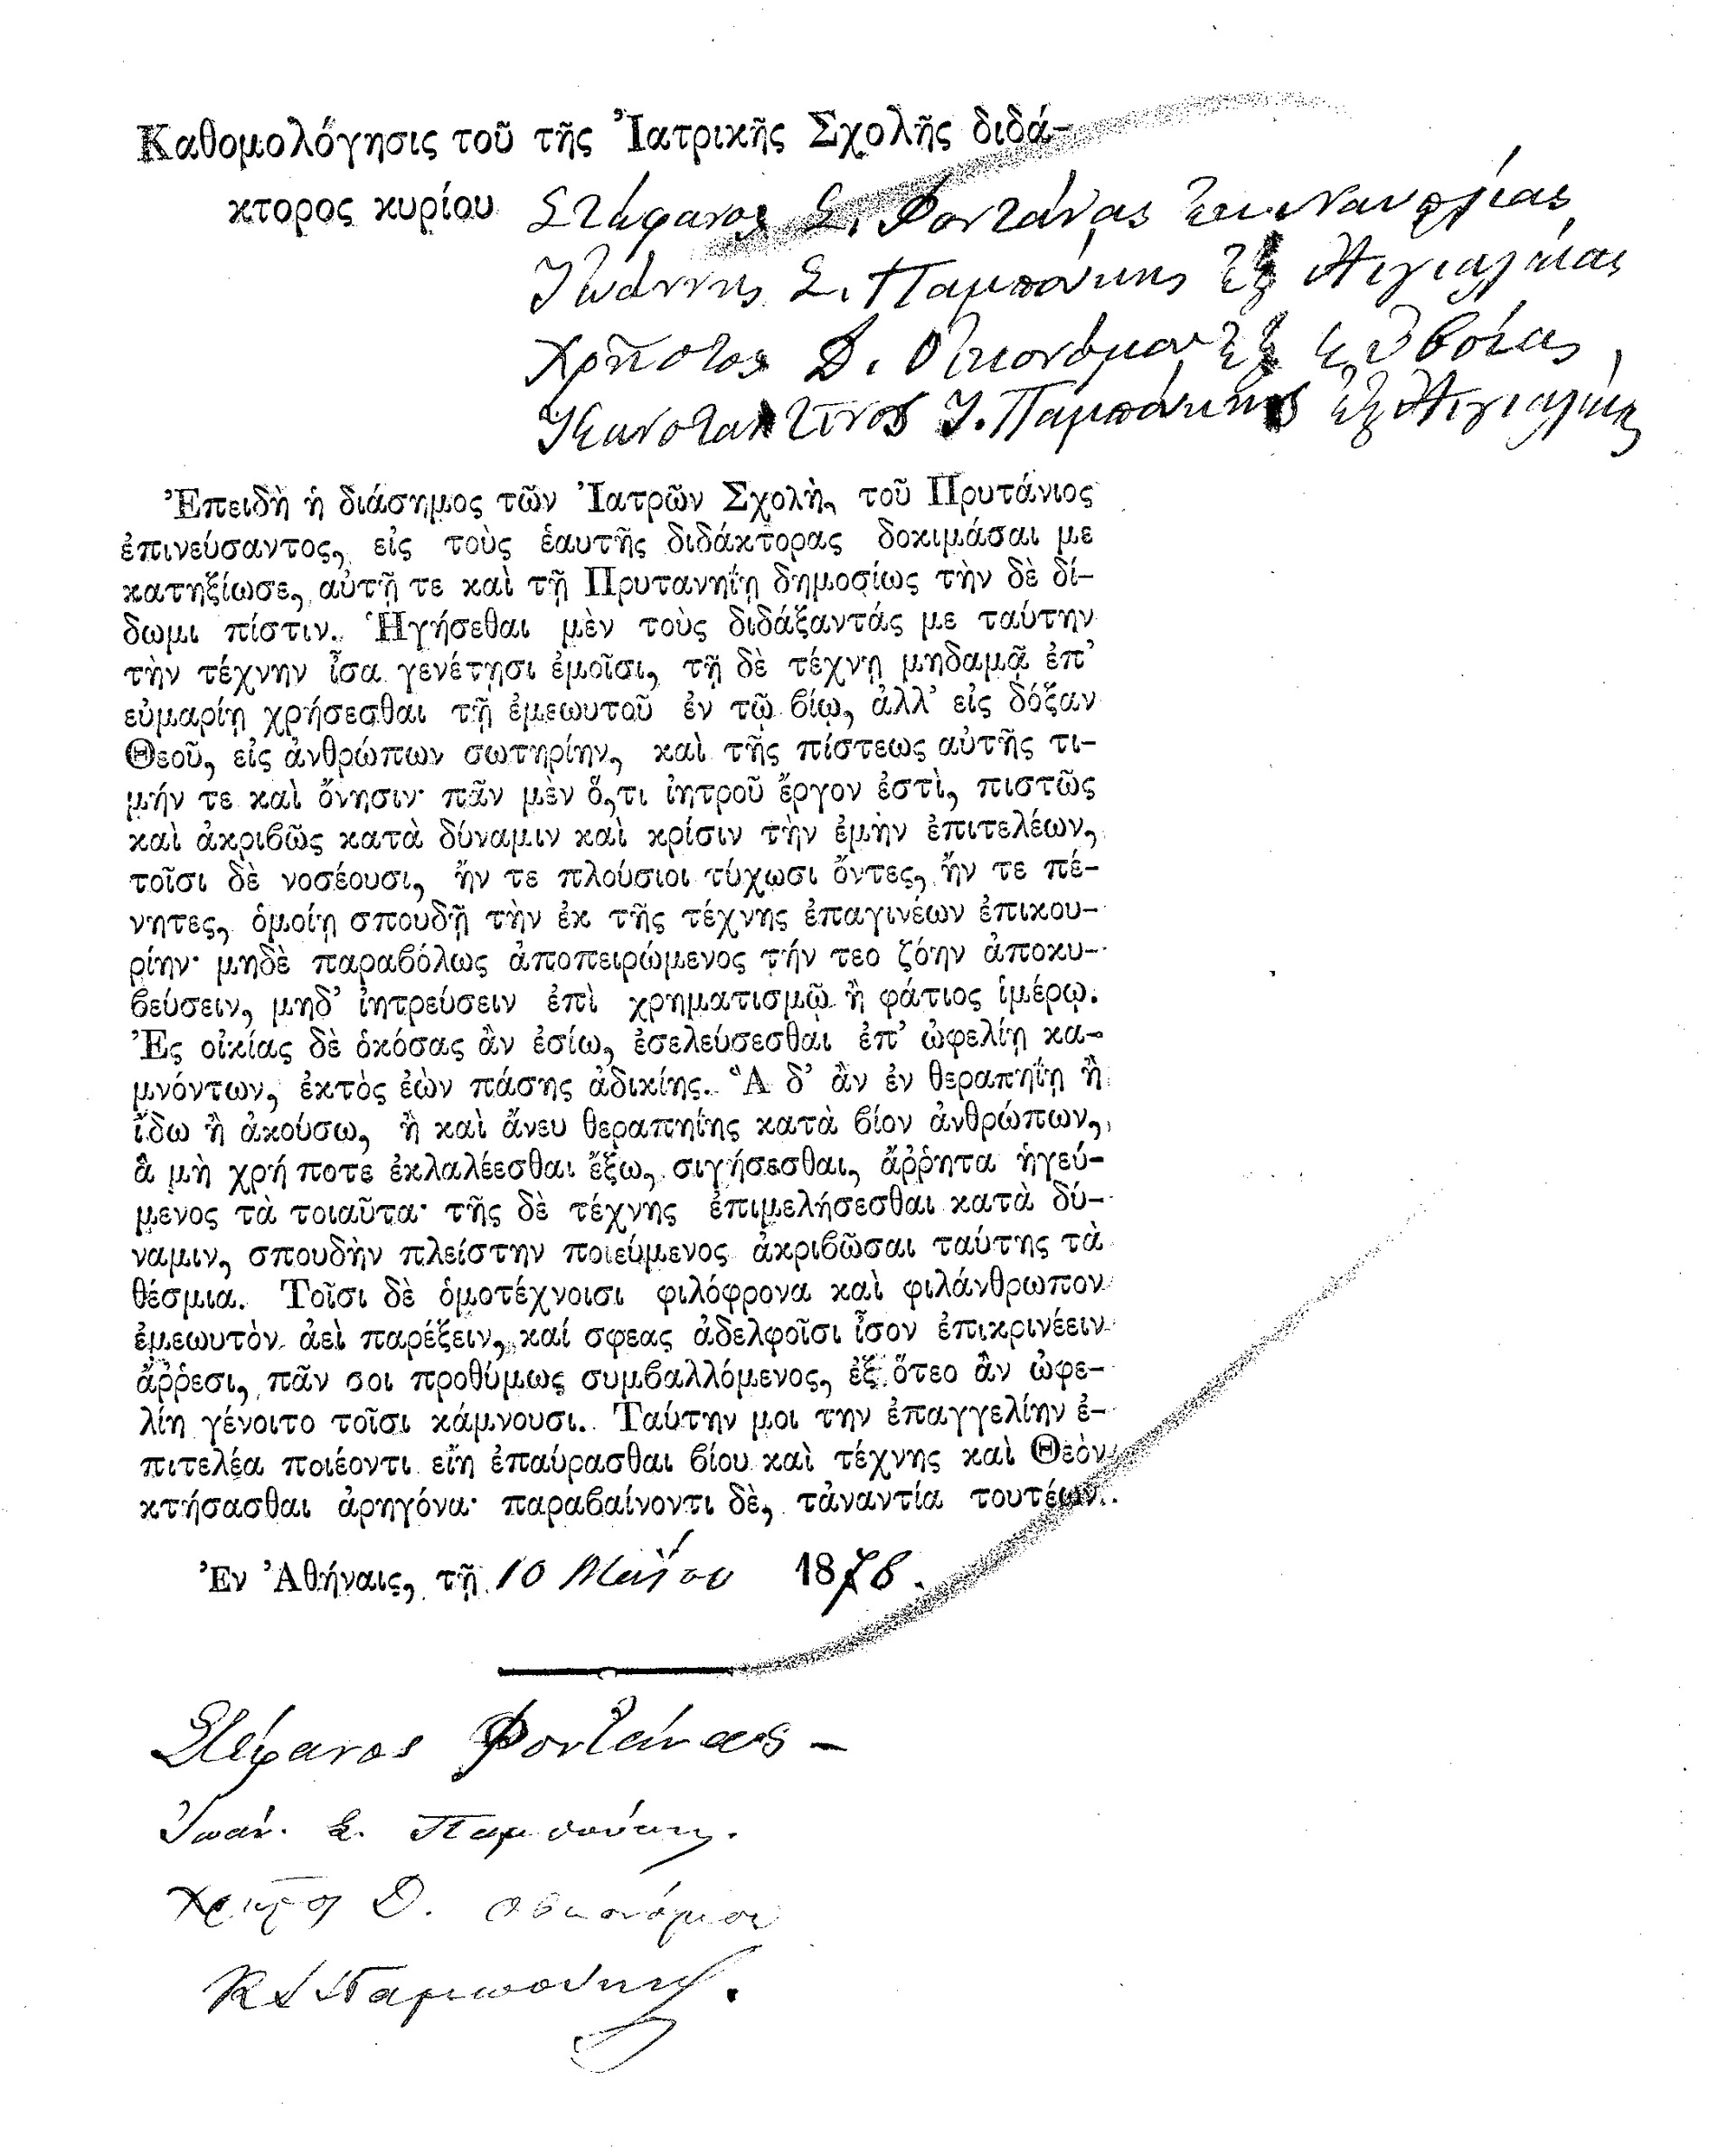 Καθομολόγησις τοῦ τῆς Ἰατρικῆς Σχολῆς διδά-
κτορος κυρίου Στέφανος Σ. Φονtάνας ἐκ Ναυπλίας
Ἰωάννης Σ. Παμπούκης ἐξ Αἰγιαλείας
Χρῆστος Δ. Οἰκονόμου ἐξ Εὐβοίας
Κωνσταντῖνος Ἰ. Παμπούκης ἐξ Αἰγιαλείας
Ἐπειδὴ ἡ διάσημος τῶν Ἰατρῶν Σχολὴ, τοῦ Πρυτάνιος
ἐπινεύσαντος, εἰς τοὺς ἑαυτῆς διδάκτορας δοκιμάσαι με
κατηξίωσε, αὐτῇ τε καὶ τῇ Πρυτανηΐῃ δημοσίως τὴν δὲ δί-
δωμι πίστιν. Ἡγήσεθαι μὲν τοὺς διδάξαντάς με ταύτην
τὴν τέχνην ἶσα γενέτῃσι ἐμοῖσι, τῇ δὲ τέχνῃ μηδαμᾷ ἐπ’
εὐμαρίῃ χρήσεσθαι τῇ ἐμεωυτοῦ ἐν τῷ βίῳ, ἀλλ’ εἰς δόξαν
Θεοῦ, εἰς ἀνθρώπων σωτηρίην, καὶ τῆς πίστεως αὐτῆς τι-
μήν τε καὶ ὄνησιν· πᾶν μὲν ὅ,τι ἰητροῦ ἔργον ἐστὶ, πιστῶς
καὶ ἀκριβῶς κατὰ δύναμιν καὶ κρίσιν τὴν ἐμὴν ἐπιτελέων,
τοῖσι δὲ νοσέουσι, ἤν τε πλούσιοι τύχωσι ὄντες, ἤν τε πέ-
νητες, ὁμοίῃ σπουδῇ τὴν ἐκ τῆς τέχνης ἐπαγινέων ἐπικου-
ρίην· μηδὲ παραβόλως ἀποπειρώμενος τήν τεο ζόην ἀποκυ-
βεύσειν, μηδ’ ἰητρεύσειν ἐπὶ χρηματισμῷ ἢ φάτιος ἱμέρῳ.
Ἐς οἰκίας δὲ ὁκόσας ἂν ἐσίω, ἐσελεύσεσθαι ἐπ’ ὠφελίῃ κα-
μνόντων, ἐκτὸς ἐὼν πάσης ἀδικίης. Ἃ δ’ ἂν ἐν θεραπηΐῃ ἢ
ἴδω ἢ ἀκούσω, ἢ καὶ ἄνευ θεραπηίης κατὰ βίον ἀνθρώπων,
ἃ μὴ χρή ποτε ἐκλαλέεσθαι ἔξω, σιγήσεσθαι, ἄῤῥητα ἡγεύ-
μενος τὰ τοιαῦτα· τῆς δὲ τέχνης ἐπιμελήσεσθαι κατὰ δύ-
ναμιν, σπουδὴν πλείστην ποιεύμενος ἀκριβῶσαι ταύτης τὰ
θέσμια. Τοῖσι δὲ ὁμοτέχνοισι φιλόφρονα καὶ φιλάνθρωπον
ἐμεωυτὸν ἀεὶ παρέξειν, καί σφεας ἀδελφοῖσι ἶσον ἐπικρινέειν
ἄῤῥεσι, πᾶν σοι προθύμως συμβαλλόμενος, ἐξ ὅτεο ἂν ὠφε-
λίη γένοιτο τοῖσι κάμνουσι. Ταύτην μοι την ἐπαγγελίην ἐ-
πιτελέα ποιέοντι εἴη ἐπαύρασθαι βίου καὶ τέχνης καὶ Θεὸν
κτήσασθαι ἀρηγόνα· παραβαίνοντι δὲ, τἀναντία τουτέων.
Ἐν Ἀθήναις, τῇ 10 Μαΐου 1878.
Στέφανος Φοντάνας –
Ἰωάν. Σ. Παμπούκης.
Χρῆστος Δ. Οἰκονόμου
Κ Ἰ Παμπούκης.